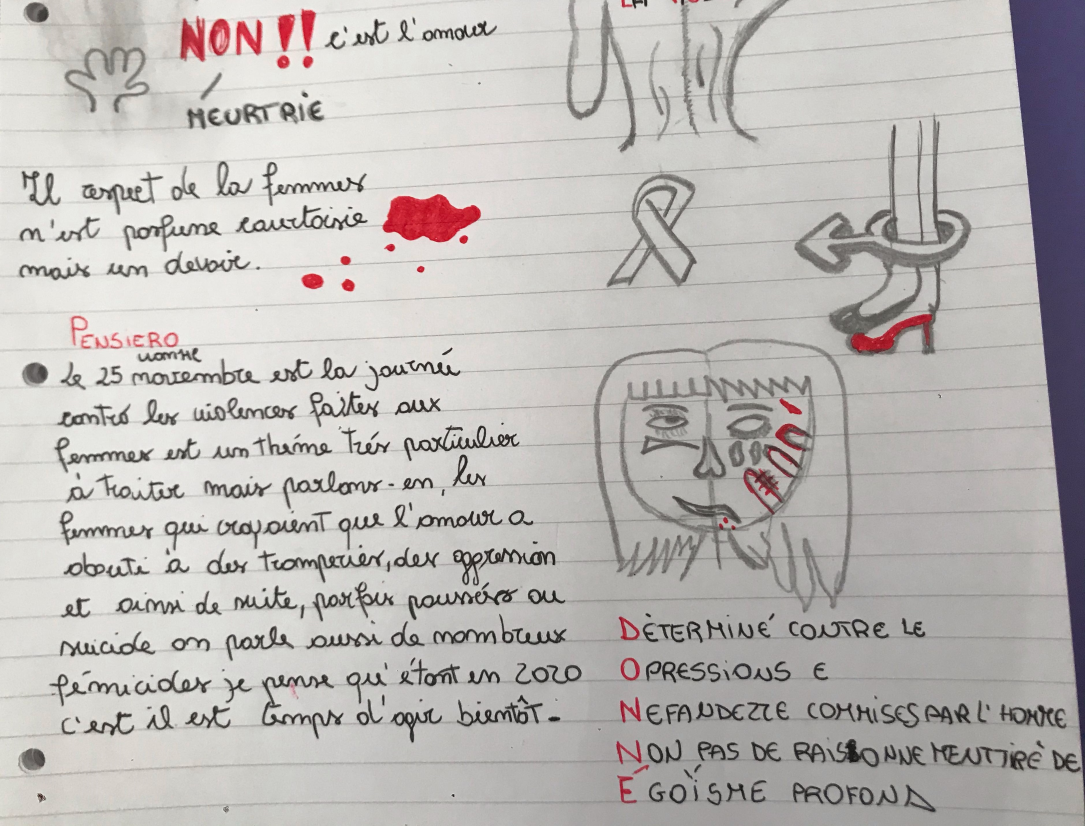 NON!! c'est l'amour
MEURTRIE
Il respect de la femmes
n'est porfume courtoisie
mais un devoir.
PENSIERO
Le 25 novembre est la journée
contro les violences faites aux
femmes est un thème très particulier
à traiter mais parlons-en, les
femmes qui croyaient que l'amour a
abouti à des tromperies, des aggression
et ainsi de suite, parfois poussées au
suicide on parle aussi de nombreux
fémicides je pense qu'étant en 2020
c'est il est temps d'agir bientôt-
DÈTERMINÉ CONTRE LE
OPRESSIONS E
NEFANDEZZE COMMISES PAR L'HOMME
NON PAS DE RAISONNEMENT TIRÈ DE
ÉGOÏSME PROFOND